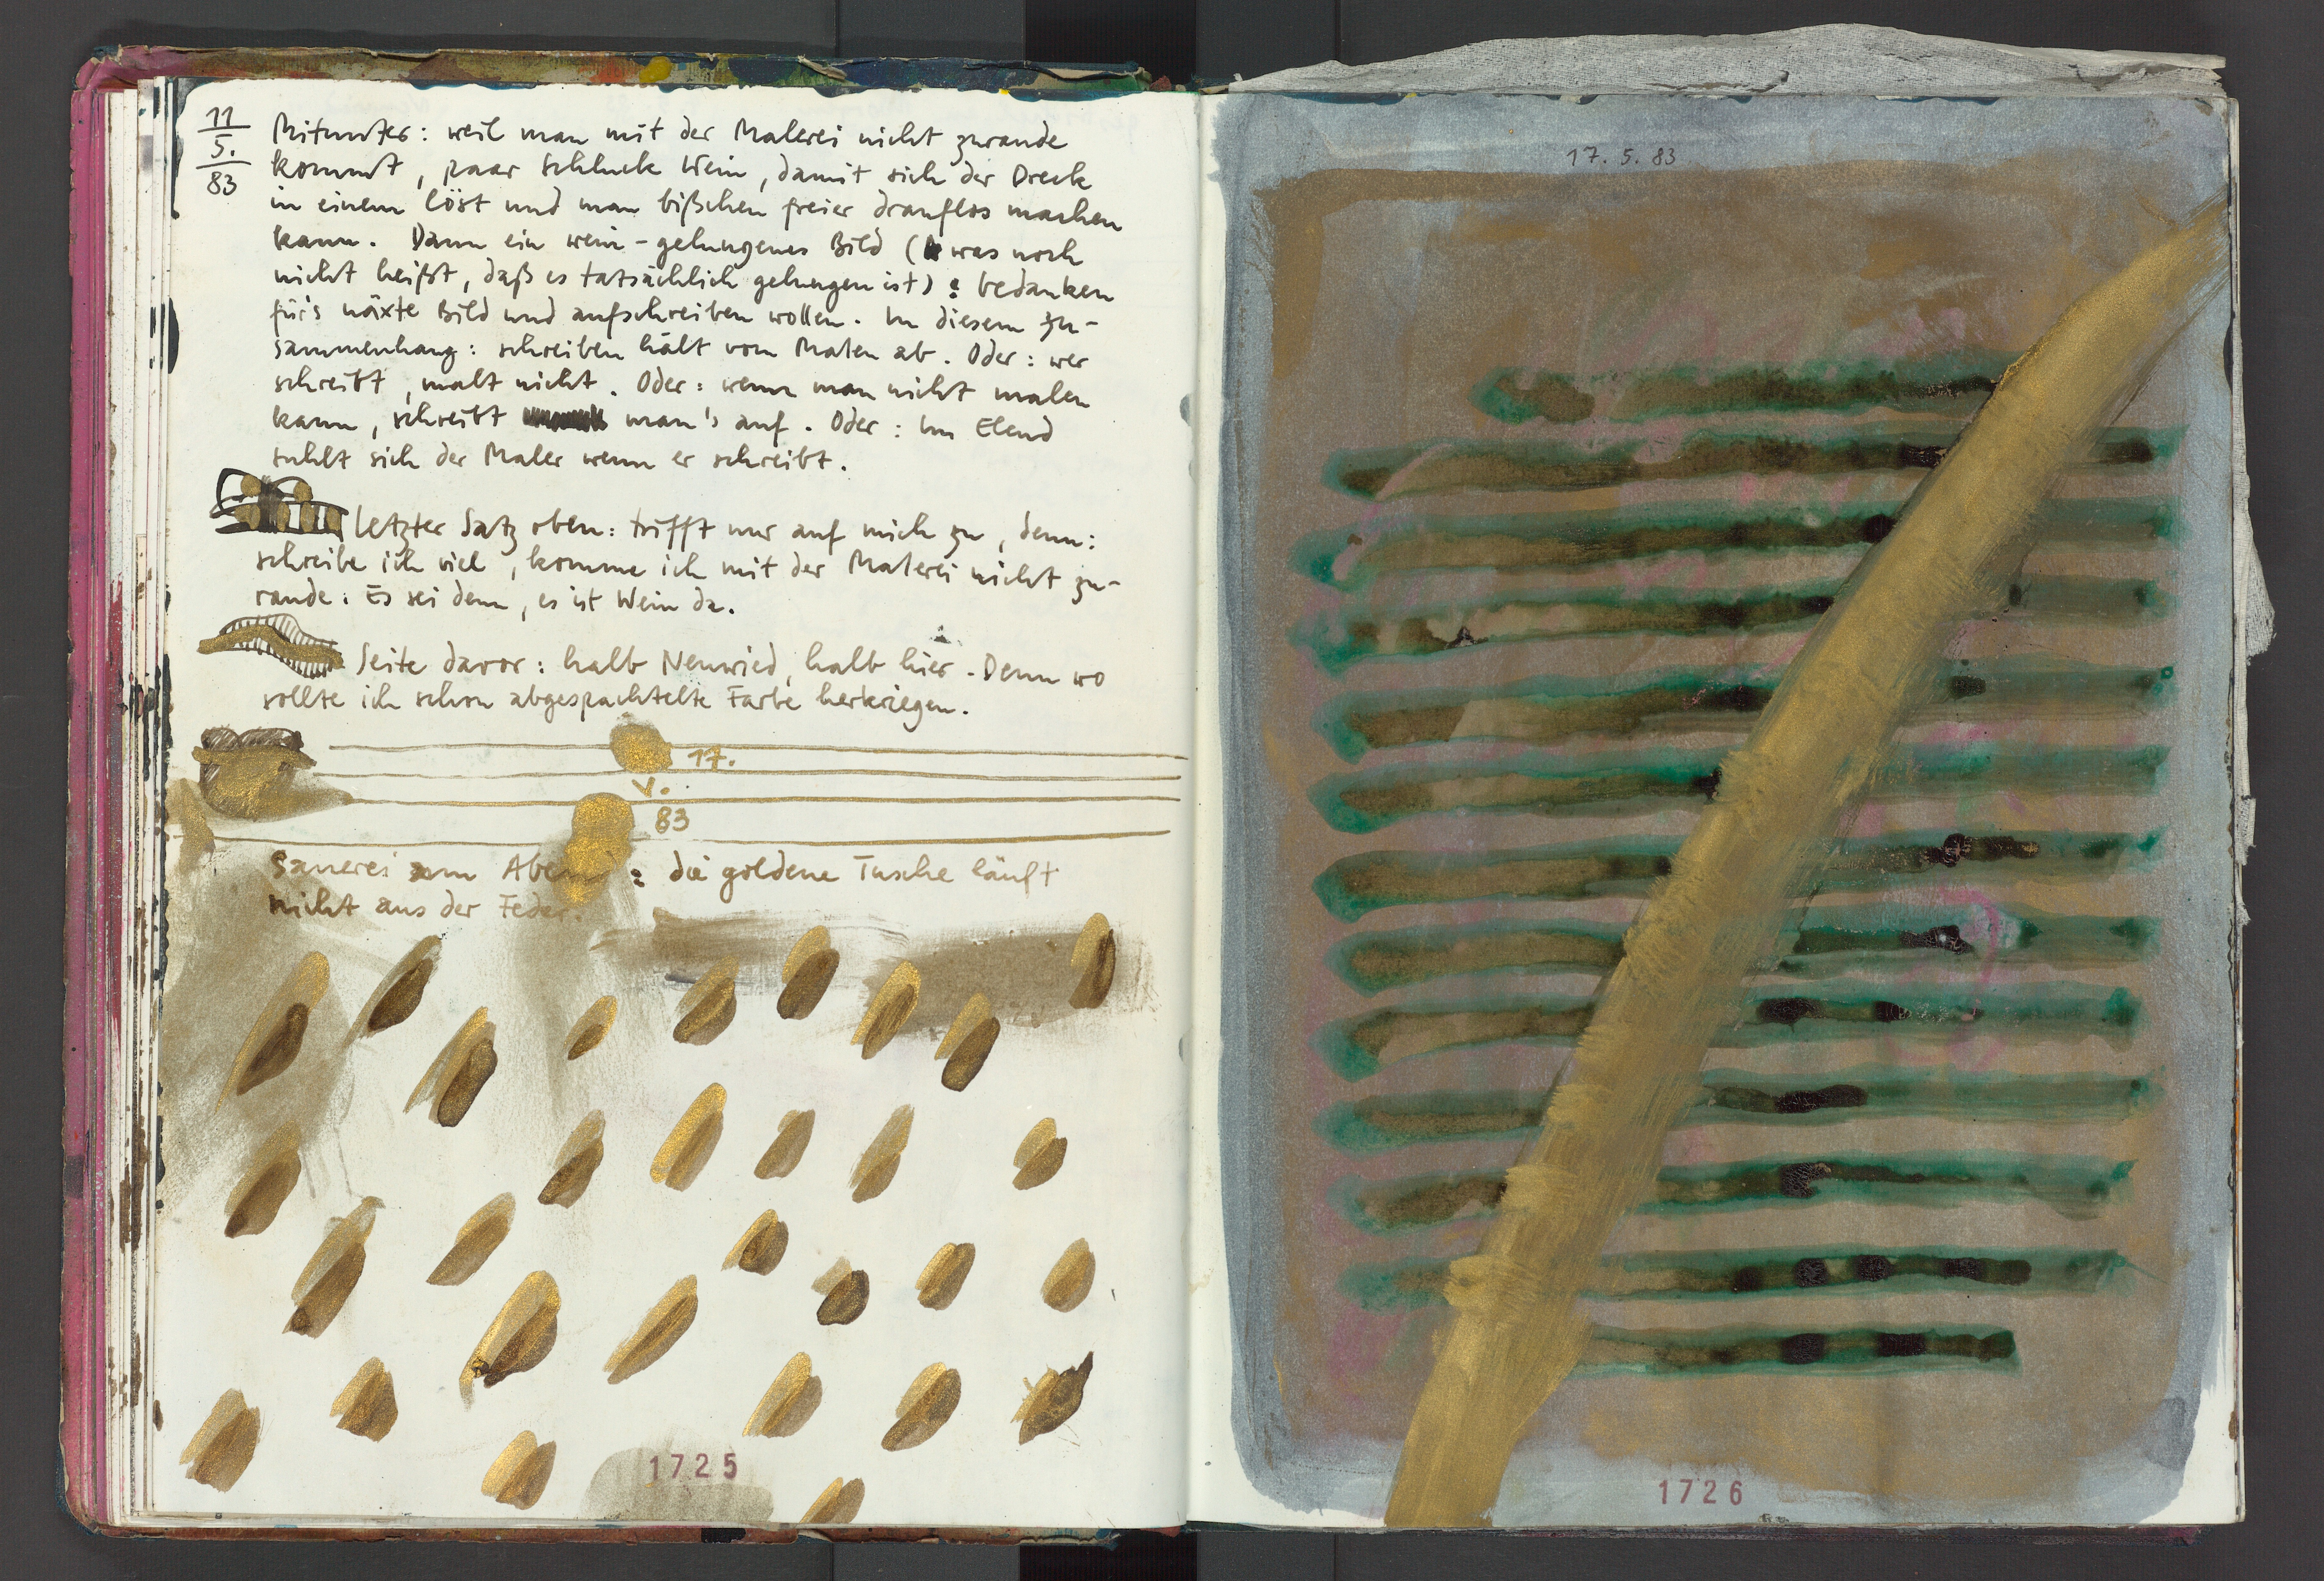 11
5.
83
Mitunter: weil man mit der Malerei nicht zurande
kommt, paar Schluck Wein, damit sich der Dreck
in einem löst und man bißchen freier drauflos machen
kann. Dann ein wein-gelungenes Bild (was noch
nicht heißt, daß es tatsächlich gelungen ist): bedanken
für's näxte Bild und aufschreiben wollen. Im diesem Zu-
sammenhang: schreiben hält vom Malen ab. Oder: wer
schreibt, malt nicht. Oder: wenn man nicht malen
kann, schreibt man's auf. Oder: Im Elend
suhlt sich der Maler wenn er schreibt.
Letzter Satz oben: trifft nur auf mich zu, denn:
schreibe ich viel, komme ich mit der Malerei nicht zu-
rande. Es sei denn, es ist Wein da.
Seite davor: halb Neuwied, halb hier. Denn wo
sollte ich schon abgespachtelte Farbe herkriegen.
17.
V.
83
Sauerei am Abend: die goldene Tusche läuft
nicht aus der Feder.
1725
17. 5. 83
1726